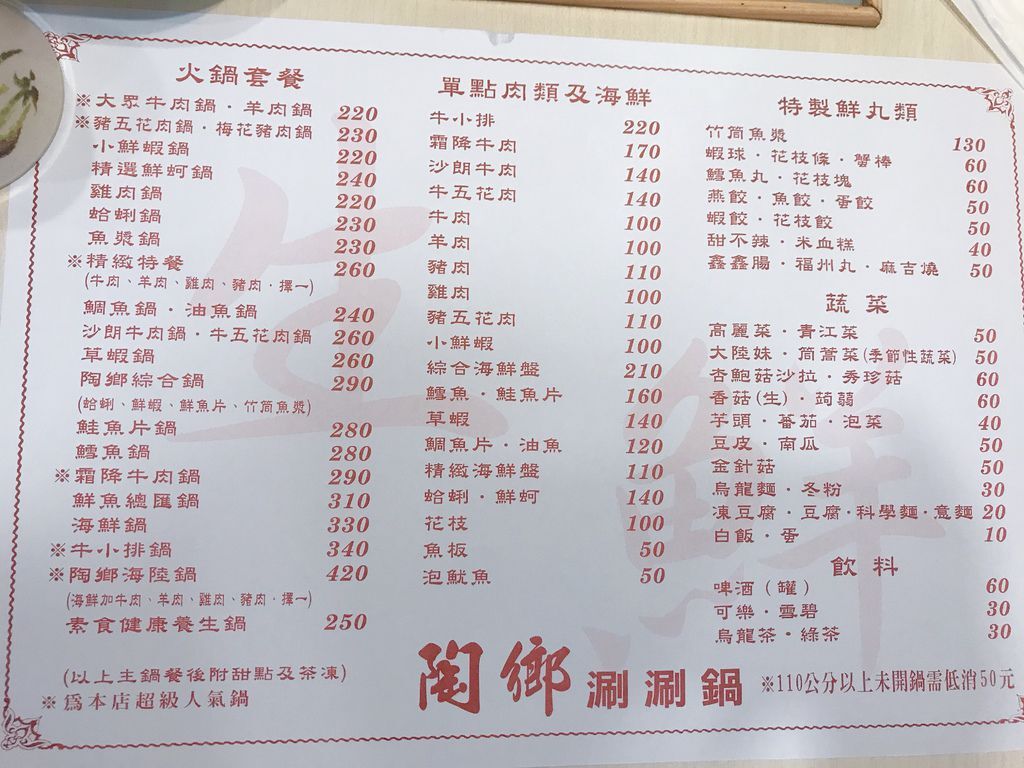 火鍋套餐
※大眾牛肉鍋·羊肉鍋 220
※豬五花肉鍋·梅花豬肉鍋 230
小鮮蝦鍋 220
精選鮮蚵鍋 240
雞肉鍋 220
蛤蜊鍋 230
魚漿鍋 230
※精緻特餐 260
(牛肉、羊肉、雞肉、豬肉·擇一)
鯛魚鍋·油魚鍋 240
沙朗牛肉鍋·牛五花肉鍋 260
草蝦鍋 260
陶鄉綜合鍋 290
(蛤蜊、鮮蝦、鮮魚片、竹筒魚漿)
鮭魚片鍋 280
鱈魚鍋 280
※霜降牛肉鍋 290
鮮魚總匯鍋 310
海鮮鍋 330
※牛小排鍋 340
※陶鄉海陸鍋 420
(海鮮加牛肉、羊肉、雞肉、豬肉·擇一)
素食健康養生鍋 250
(以上主鍋餐後附甜點及茶凍)
※為本店超級人氣鍋
單點肉類及海鮮
牛小排 220
霜降牛肉 170
沙朗牛肉 140
牛五花肉 140
牛肉 100
羊肉 100
豬肉 110
雞肉 100
豬五花肉 110
小鮮蝦 100
綜合海鮮盤 210
鱈魚·鮭魚片 160
草蝦 140
鯛魚片·油魚 120
精緻海鮮盤 110
蛤蜊·鮮蚵 140
花枝 100
魚板 50
泡魷魚 50
特製鮮丸類
竹筒魚漿 130
蝦球·花枝條·蟹棒 60
鱈魚丸·花枝塊 60
燕餃·魚餃·蛋餃 50
蝦餃·花枝餃 50
甜不辣·米血糕 40
鑫鑫腸·福州丸·麻吉燒 50
蔬菜
高麗菜·青江菜 50
大陸妹·茼蒿菜(季節性蔬菜) 50
杏鮑菇沙拉·秀珍菇 60
香菇(生)·蒟蒻 60
芋頭·蕃茄·泡菜 40
豆皮·南瓜 50
金針菇 50
烏龍麵·冬粉 30
凍豆腐·豆腐·科學麵·意麵 20
白飯·蛋 10
飲料
啤酒（罐） 60
可樂·雪碧 30
烏龍茶·綠茶 30
陶鄉 涮涮鍋
※110公分以上未開鍋需低消50元
生鮮